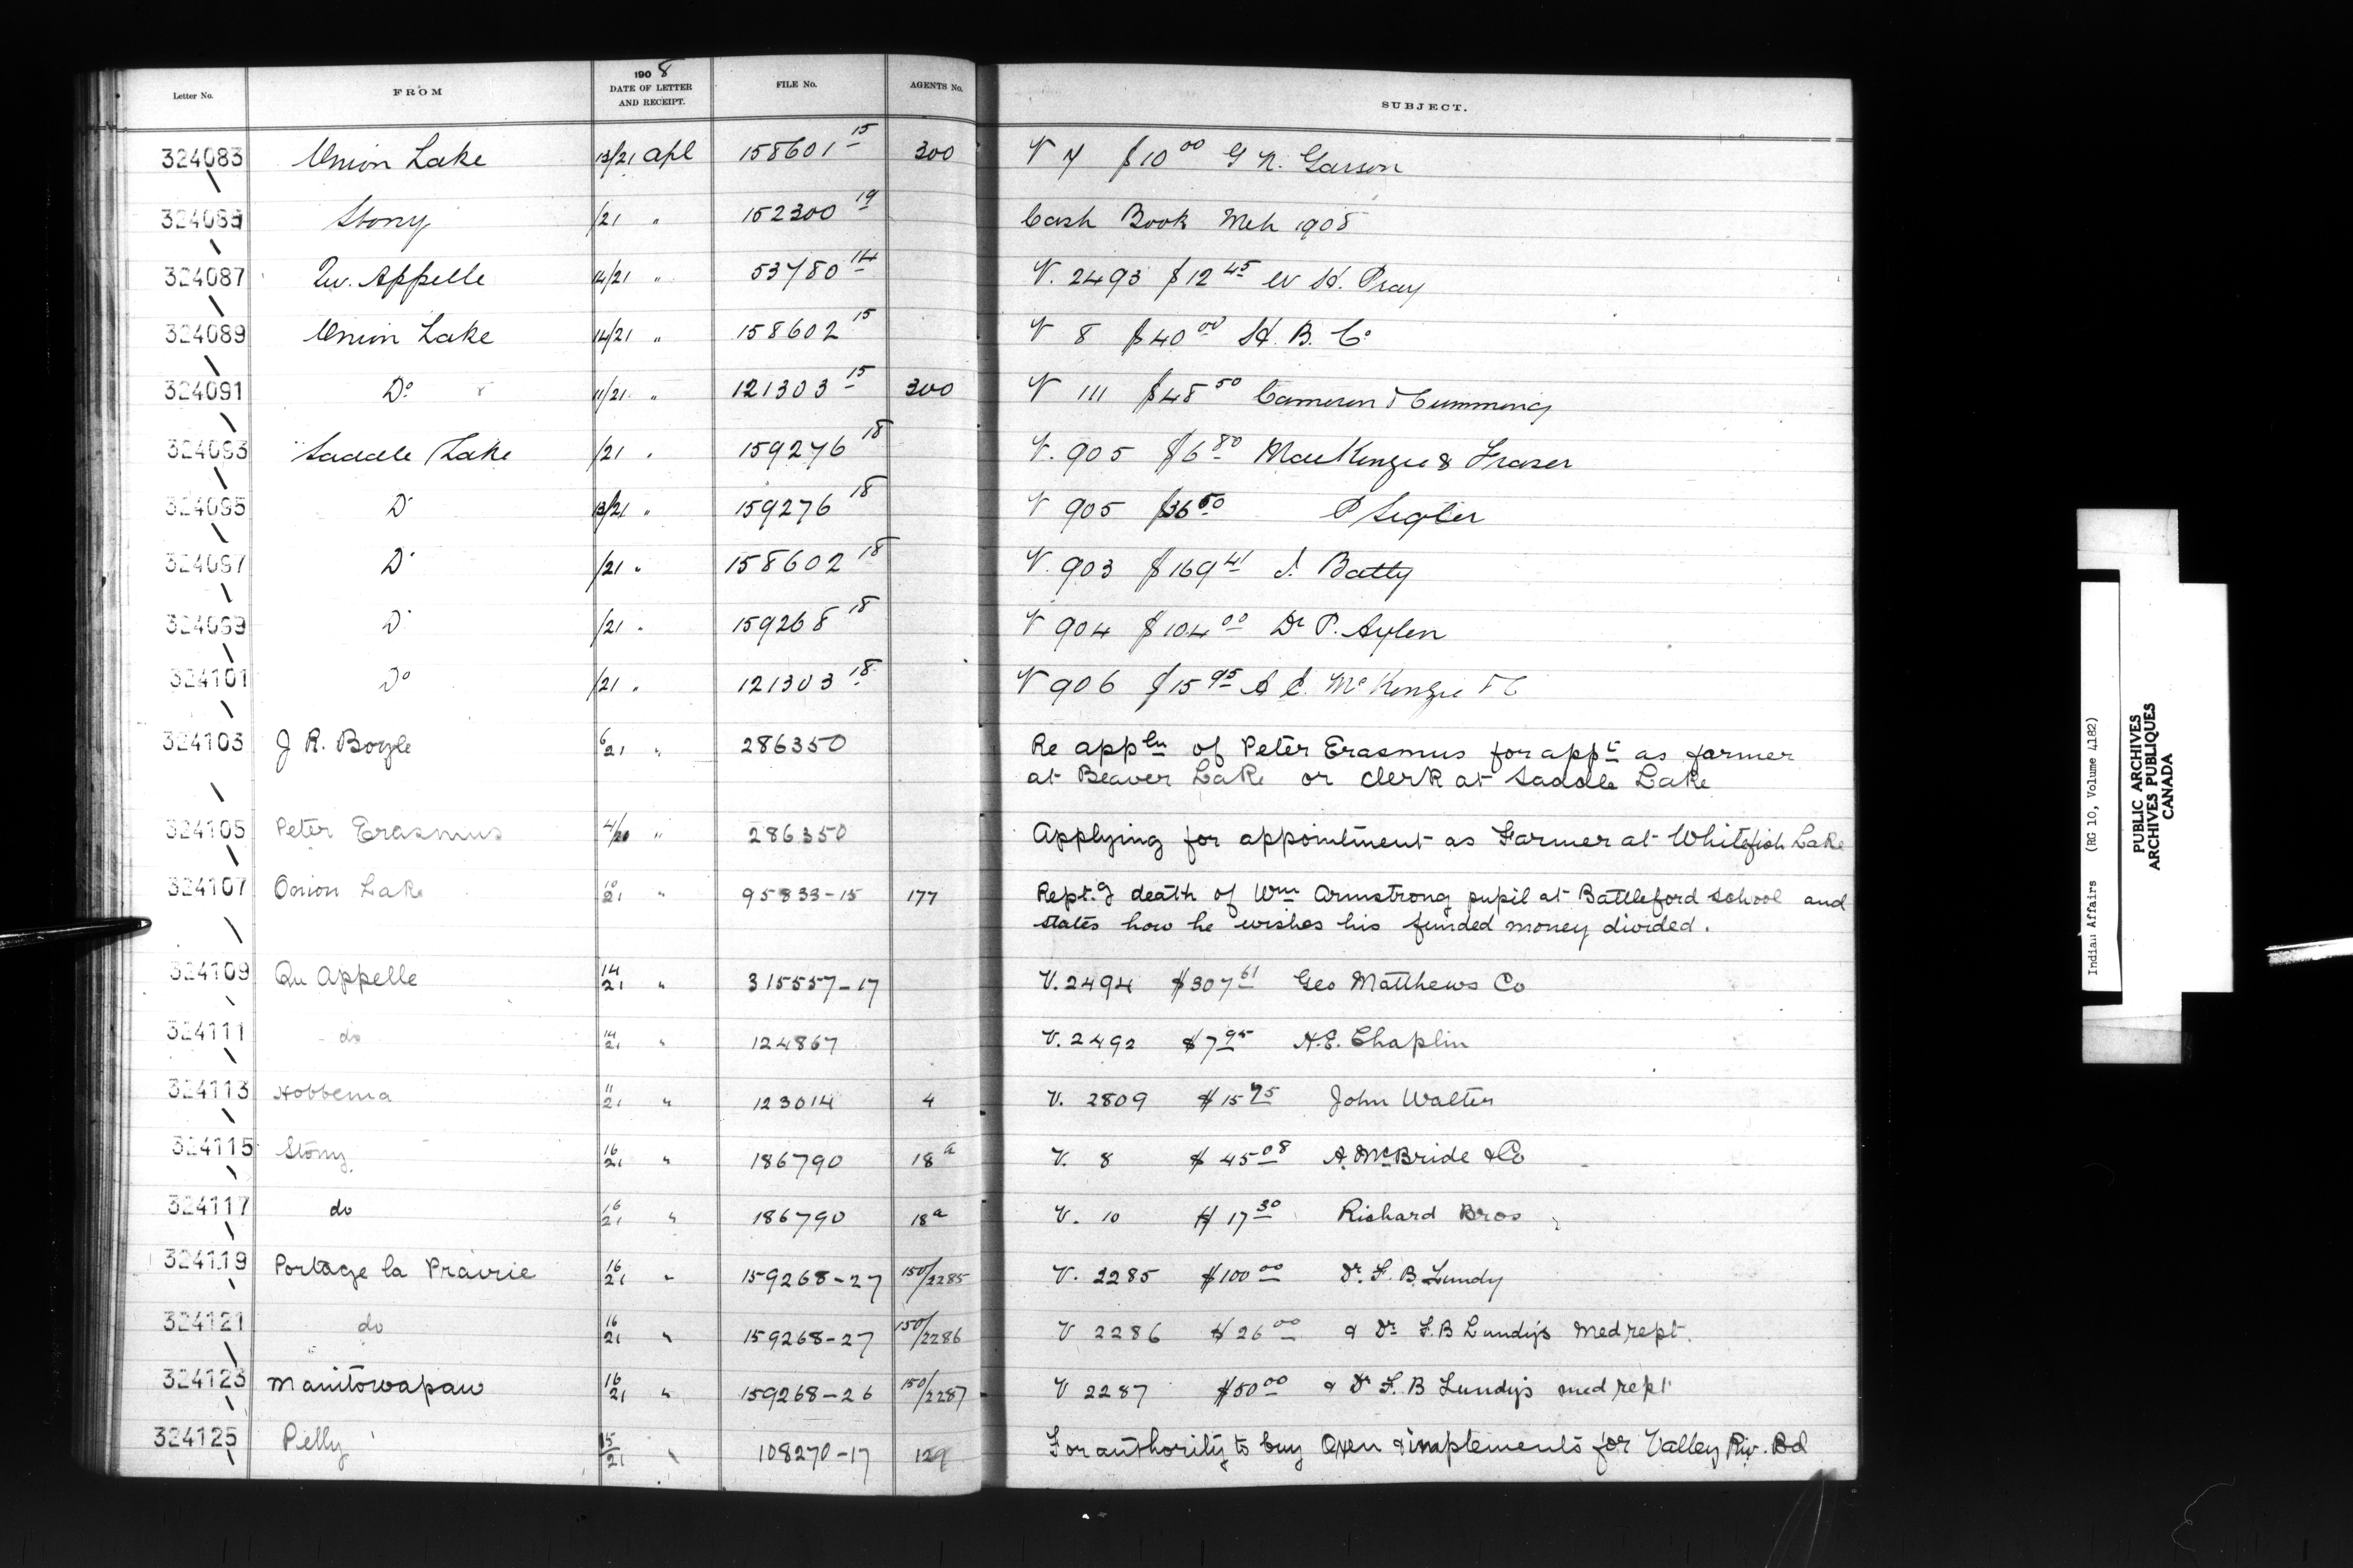 Letter No. FROM 1908 DATE OF LETTER AND RECEIPT. FILE No. AGENTS No. SUBJECT.
324083 Onion Lake 13/21 Apl 158601 15 300 V 7 $10 00 G N. Garson
324085 Stony /21 " 152300 19 Cash Book Mch 1908
324087 Qu. Appelle 14/21 " 53780 14 V. 2493 $12 45 W H. Pray
324089 Onion Lake 14/21 " 158602 15 V 8 $40 00 H. B. Co
324091 Do 11/21 " 121303 15 300 V 111 $48 50 Cameron & Cumming
324093 Saddle Lake /21 " 159276 18 V. 905 $6 80 MacKenzie & Fraser
324095 D 13/21 " 159276 18 V 905 $36 50 P Seglar
324097 D /21 " 158602 18 V. 903 $169 41 J. Batty
324099 D /21 " 159268 18 V 904 $104 00 Dr P. Aylen
324101 Do /21 " 121303 18 V 906 $15 95 A C. McKenzie & C
324103 J R. Boyle 6/21 " 286350 Re appln of Peter Erasmus for appt as farmer
at Beaver Lake or Clerk at Saddle Lake
324105 Peter Erasmus 4/20 " 286350 Applying for appointment as Farmer at Whitefish Lake
324107 Onion Lake 10/21 " 95833-15 177 Rept.g death of Wm Armstrong pupil at Battleford School and
states how he wishes his funded money divided.
324109 Qu Appelle 14/21 " 315557-17 V. 2494 $307 61 Geo Matthews Co
324111 do 14/21 " 124867 V. 2492 $7 95 H.E. Chaplin
324113 Hobbema 11/21 " 123014 4 V. 2809 $15 75 John Walter
324115 Stony 16/21 " 186790 18a V. 8 $45 08 A. McBride & Co
324117 do 16/21 " 186790 18a V. 10 $17 30 Richard Bros
324119 Portage la Prairie 16/21 " 159268-27 150/2285 V. 2285 $100 00 Dr. F. B. Lundy
324121 do 16/21 " 159268-27 150/2286 V 2286 $26 00 & Dr F.B Lundy's Med rept.
324123 Manitowapaw 16/21 " 159268-26 150/2287 V 2287 $50 00 & Dr F. B Lundy's med rept
324125 Pelly 15/21 " 108270-17 129 For authority to buy Oxen & implements for Valley Riv. Bd
Indian Affairs (RG 10, Volume 4182)
PUBLIC ARCHIVES
ARCHIVES PUBLIQUES
CANADA